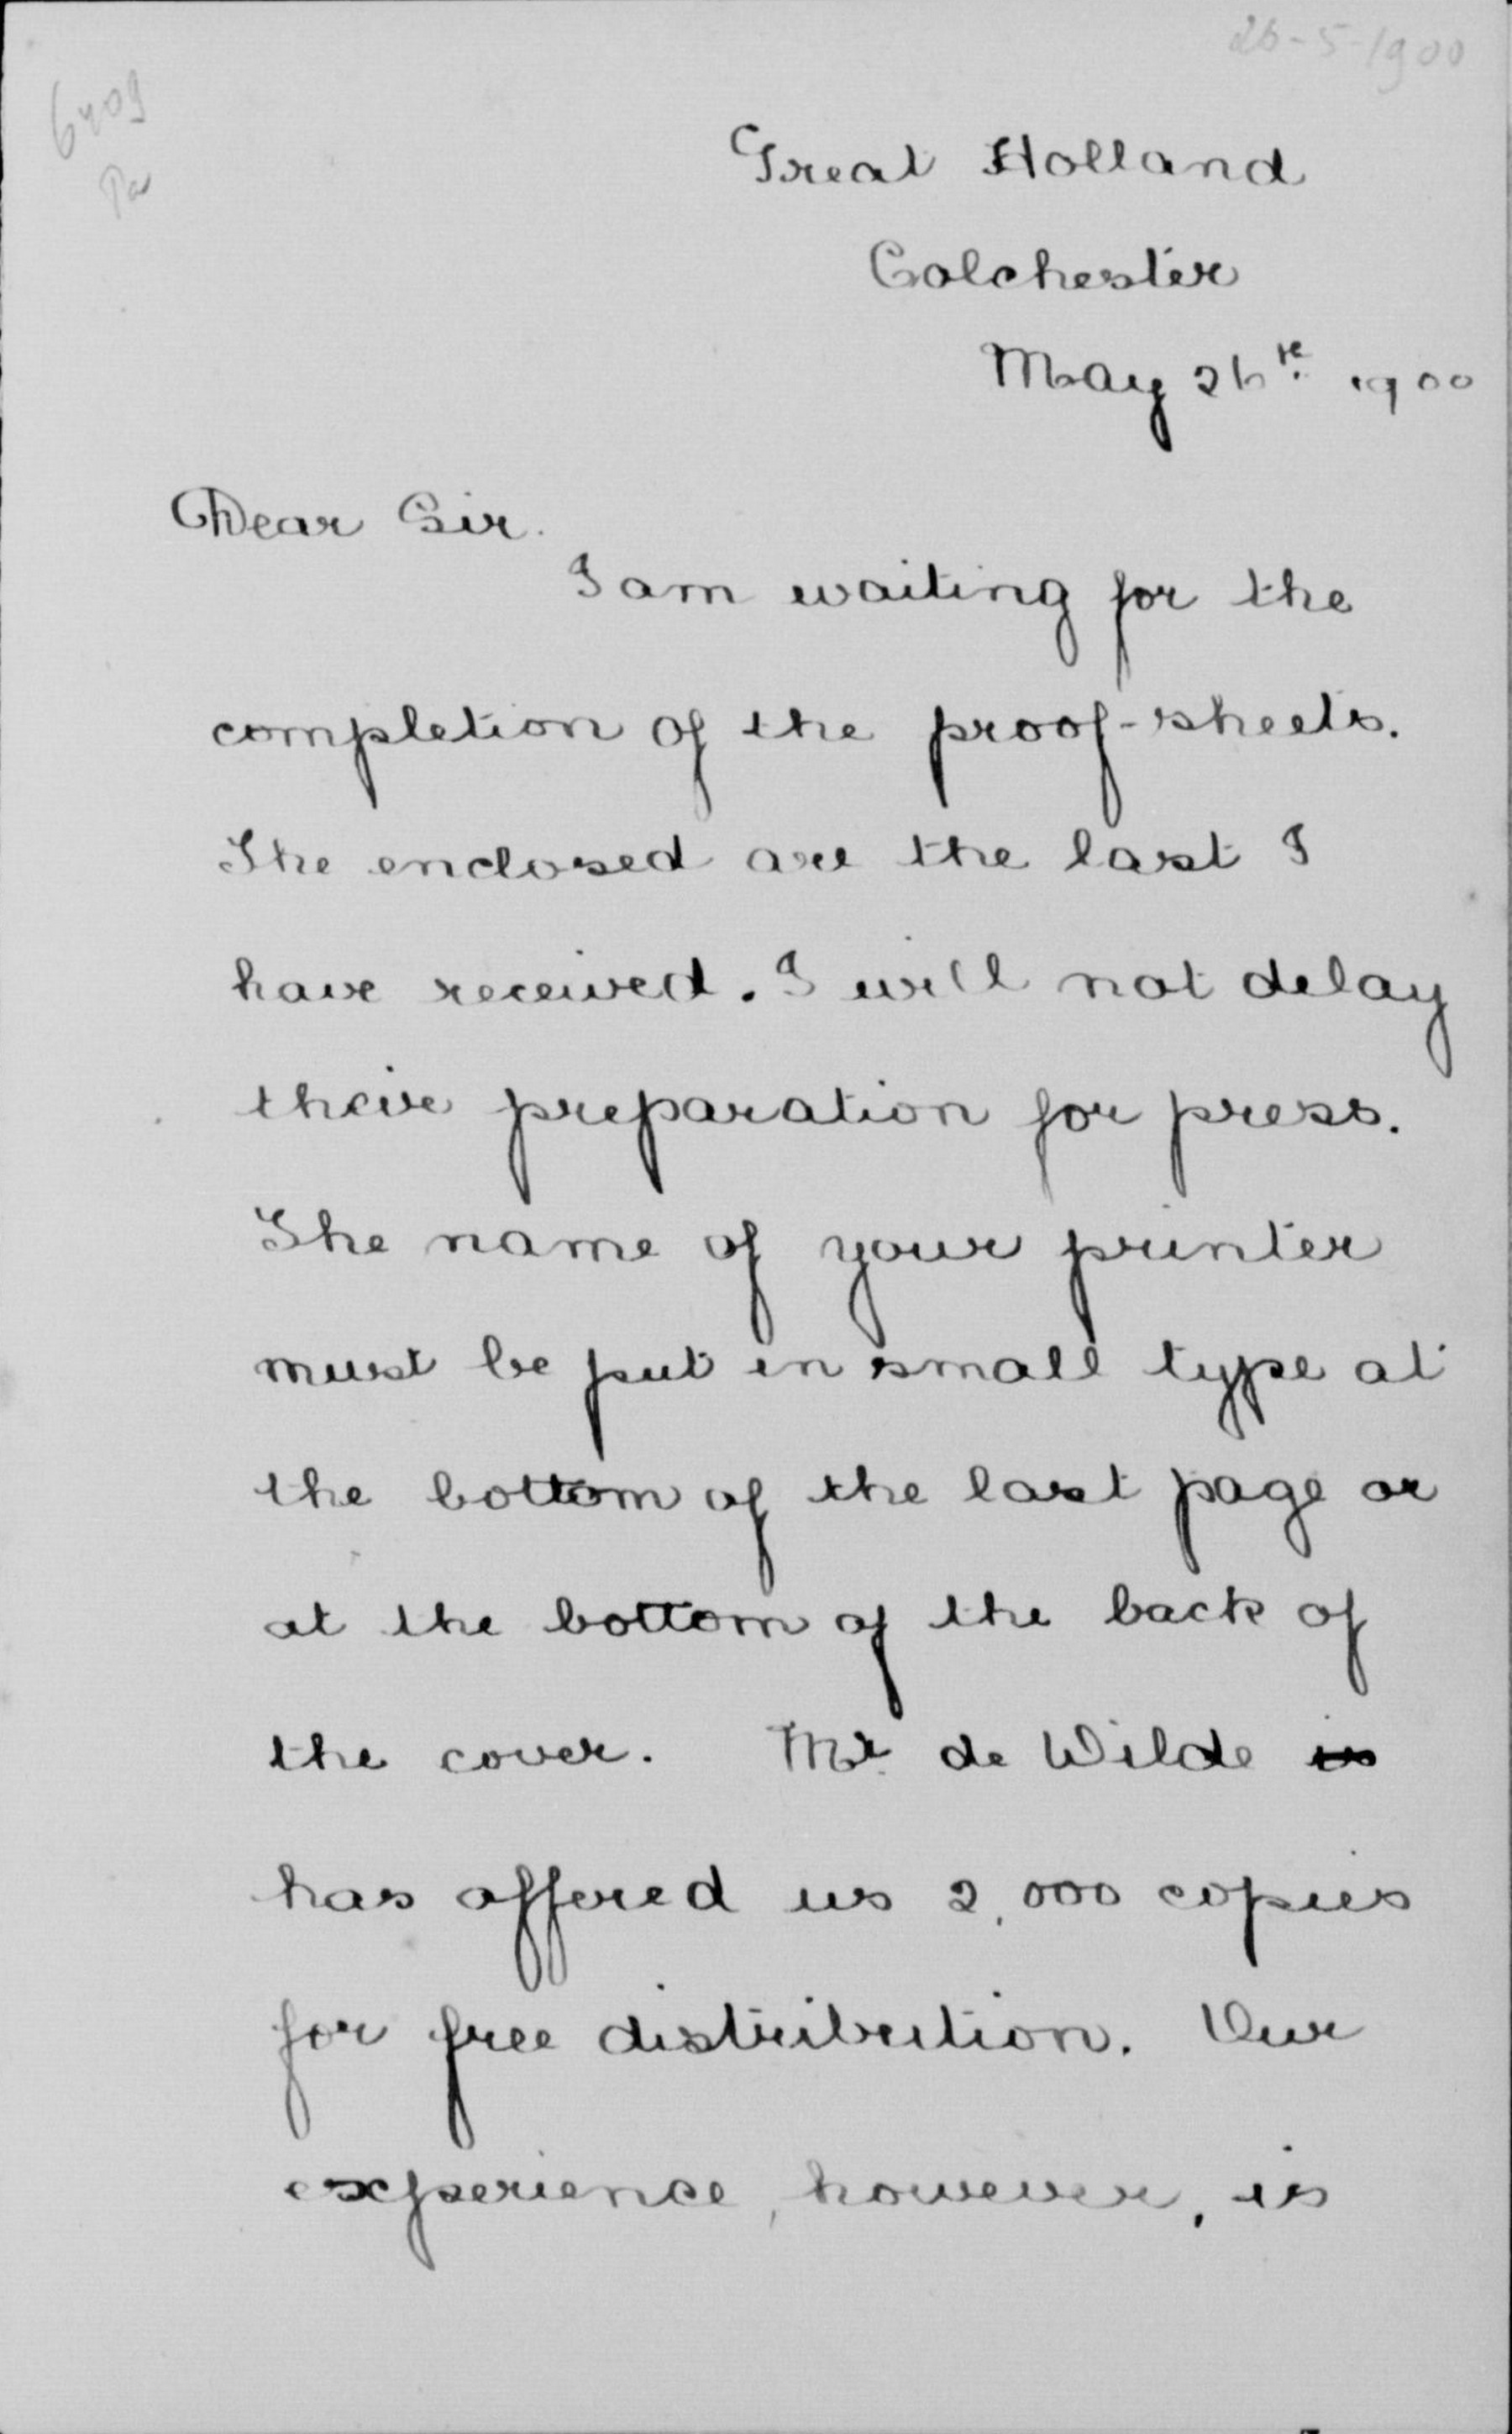 26-5-1900
6409
Pa
Great Holland
Colchester
May 26th 1900
Dear Sir.
I am waiting for the
completion of the proof-sheets.
The enclosed are the last I
have received. I will not delay
their preparation for press.
The name of your printer
must be put in small type at
the bottom of the last page or
at the bottom of the back of
the cover. Mr. de Wilde is
has offered us 2,000 copies
for free distribution. Our
experience, however, is